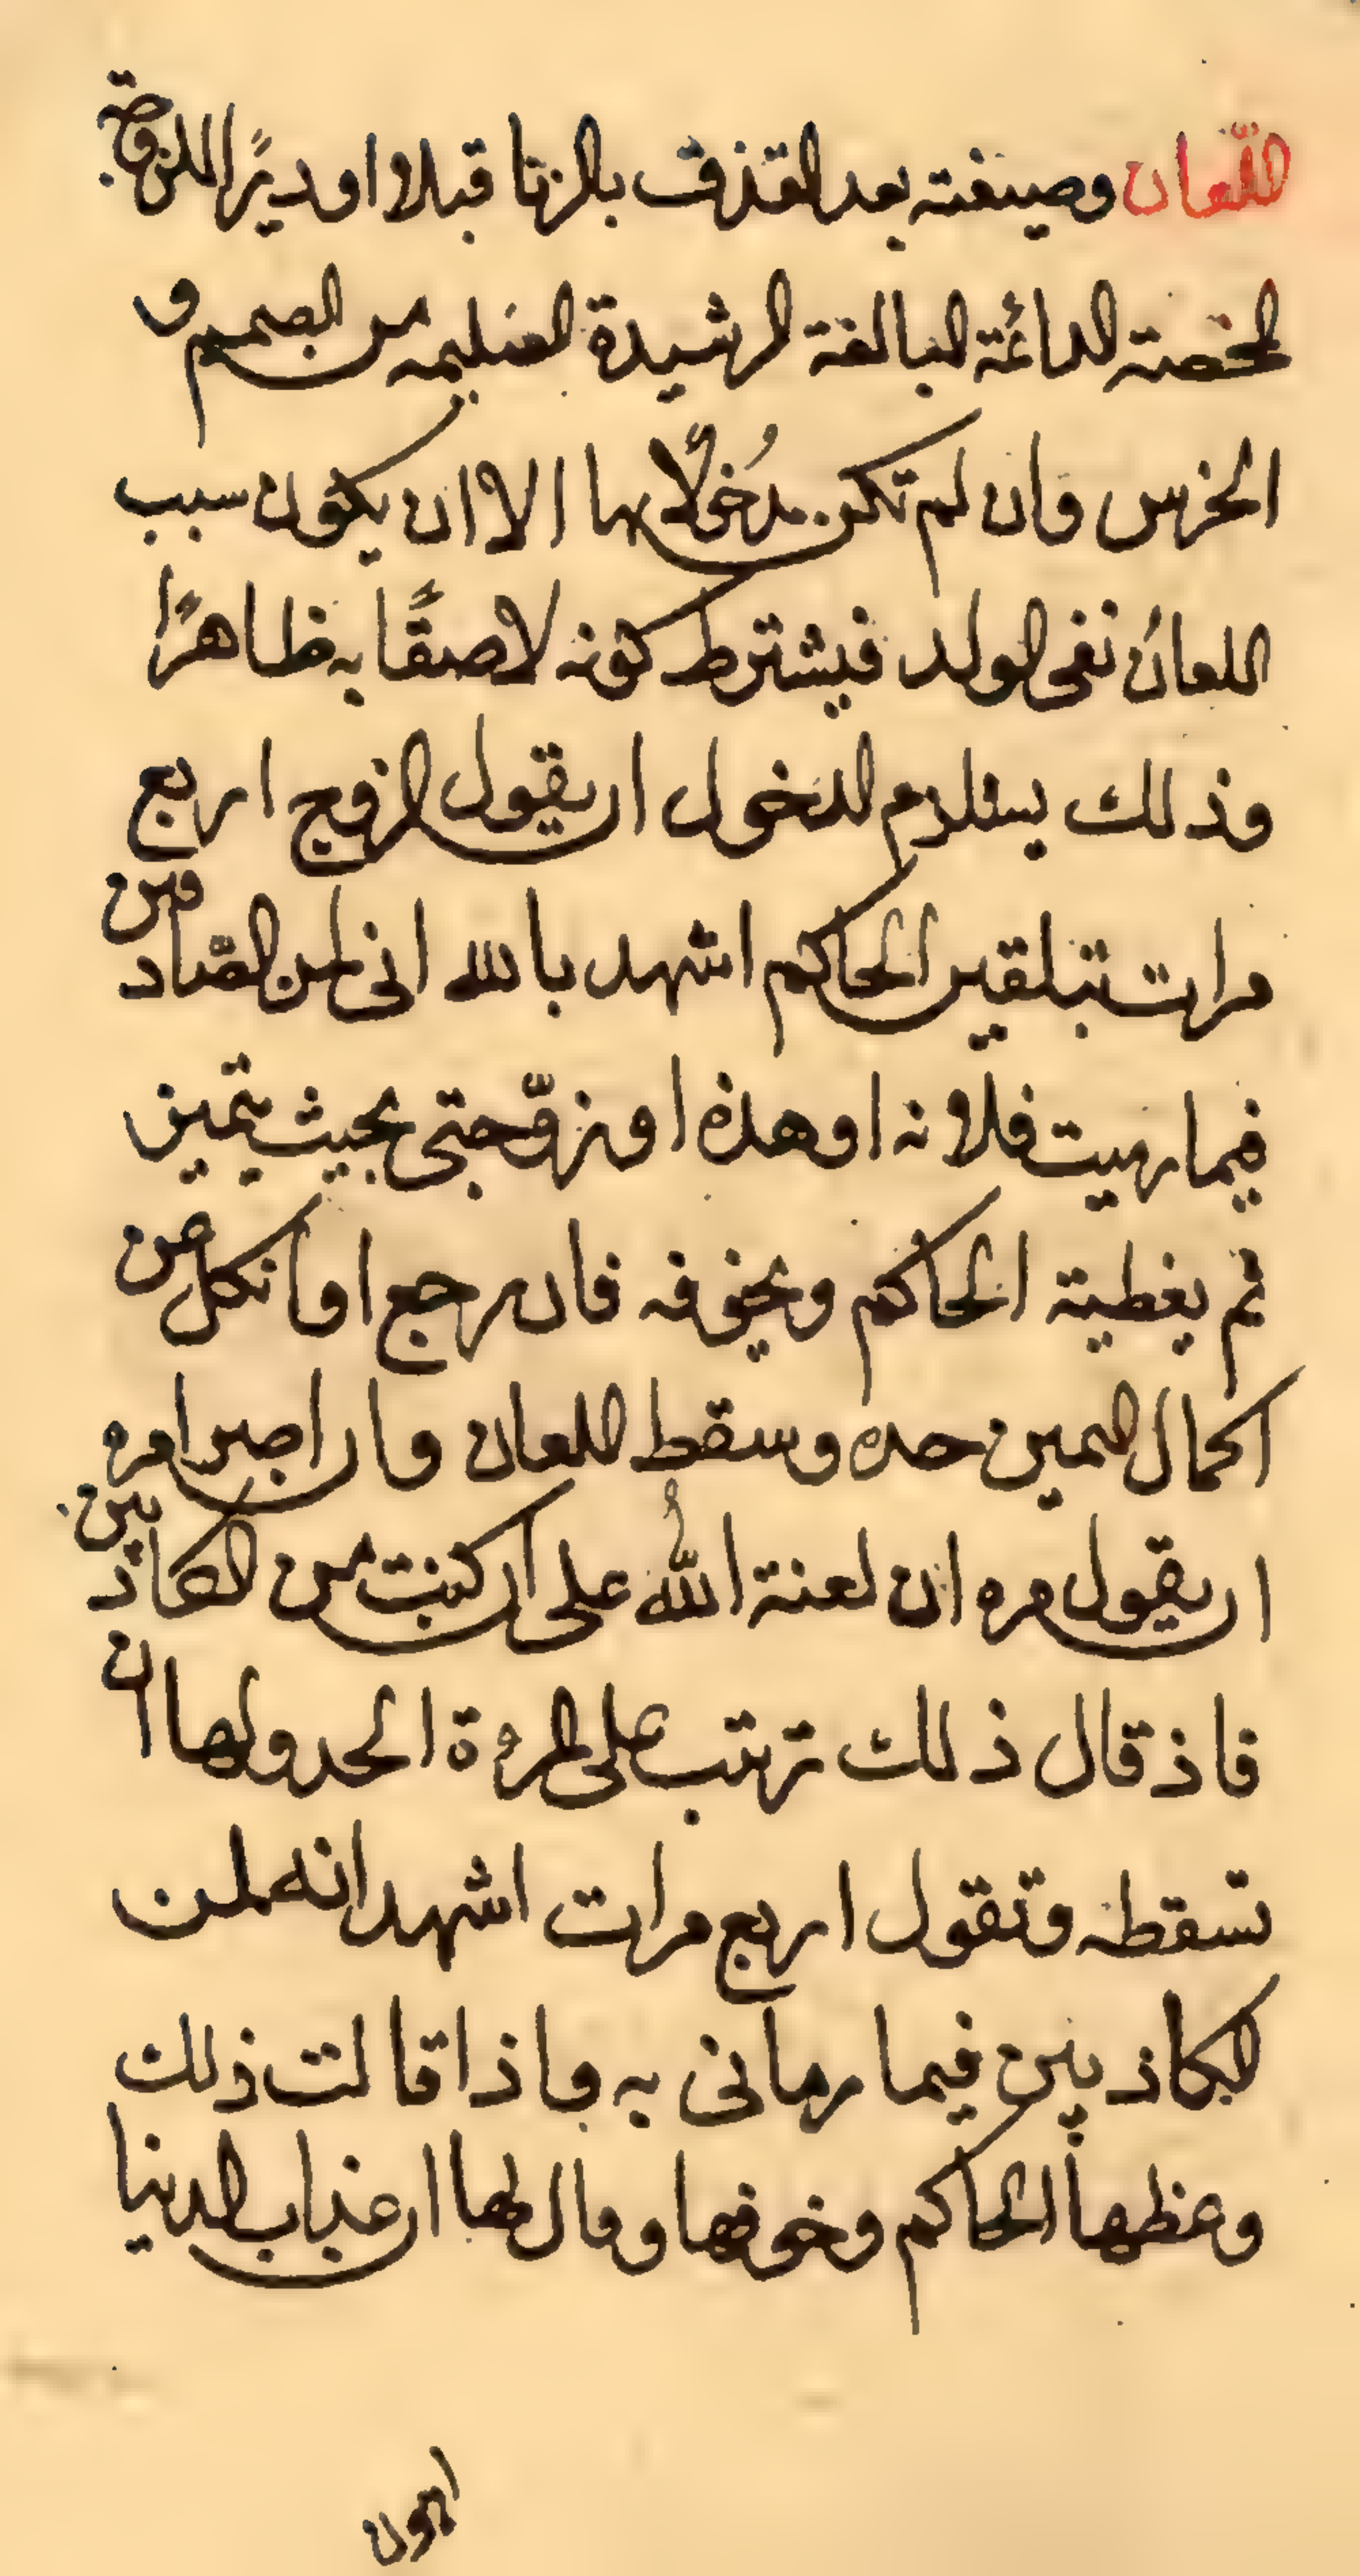 اللعان وصيغته بعد القذف بالزنا قبلا او دبرًا للزوجة
المحصنة الدائمة البالغة الرشيدة السليمه من الصمم و
الخرس وان لم تكن مدخولًا بها الا ان يكون سبب
اللعان نفى الولد فيشترط كونه لاصقًا به ظاهرًا
وذلك يستلزم الدخول ان يقول الزوج اربع
مرات بتلقين الحاكم اشهد بالله انى لمن الصادقين
فيما رميت فلانه او هذه او زوّجتى بحيث يتميز
ثم يعظية الحاكم ويخوفه فان رجع او نكل عن
اكمال اليمين حده وسقط اللعان وان اصر امره
ان يقول مره ان لعنة الله على ان كنت من الكاذبين
فاذ قال ذلك ترتب على المرءة الحد ولها ان
تسقطه وتقول اربع مرات اشهد انه لمن
الكاذبين فيما رمانى به فاذا قالت ذلك
وعظها الحاكم وخوفها وقال لها ان عذاب الدنيا
اهون